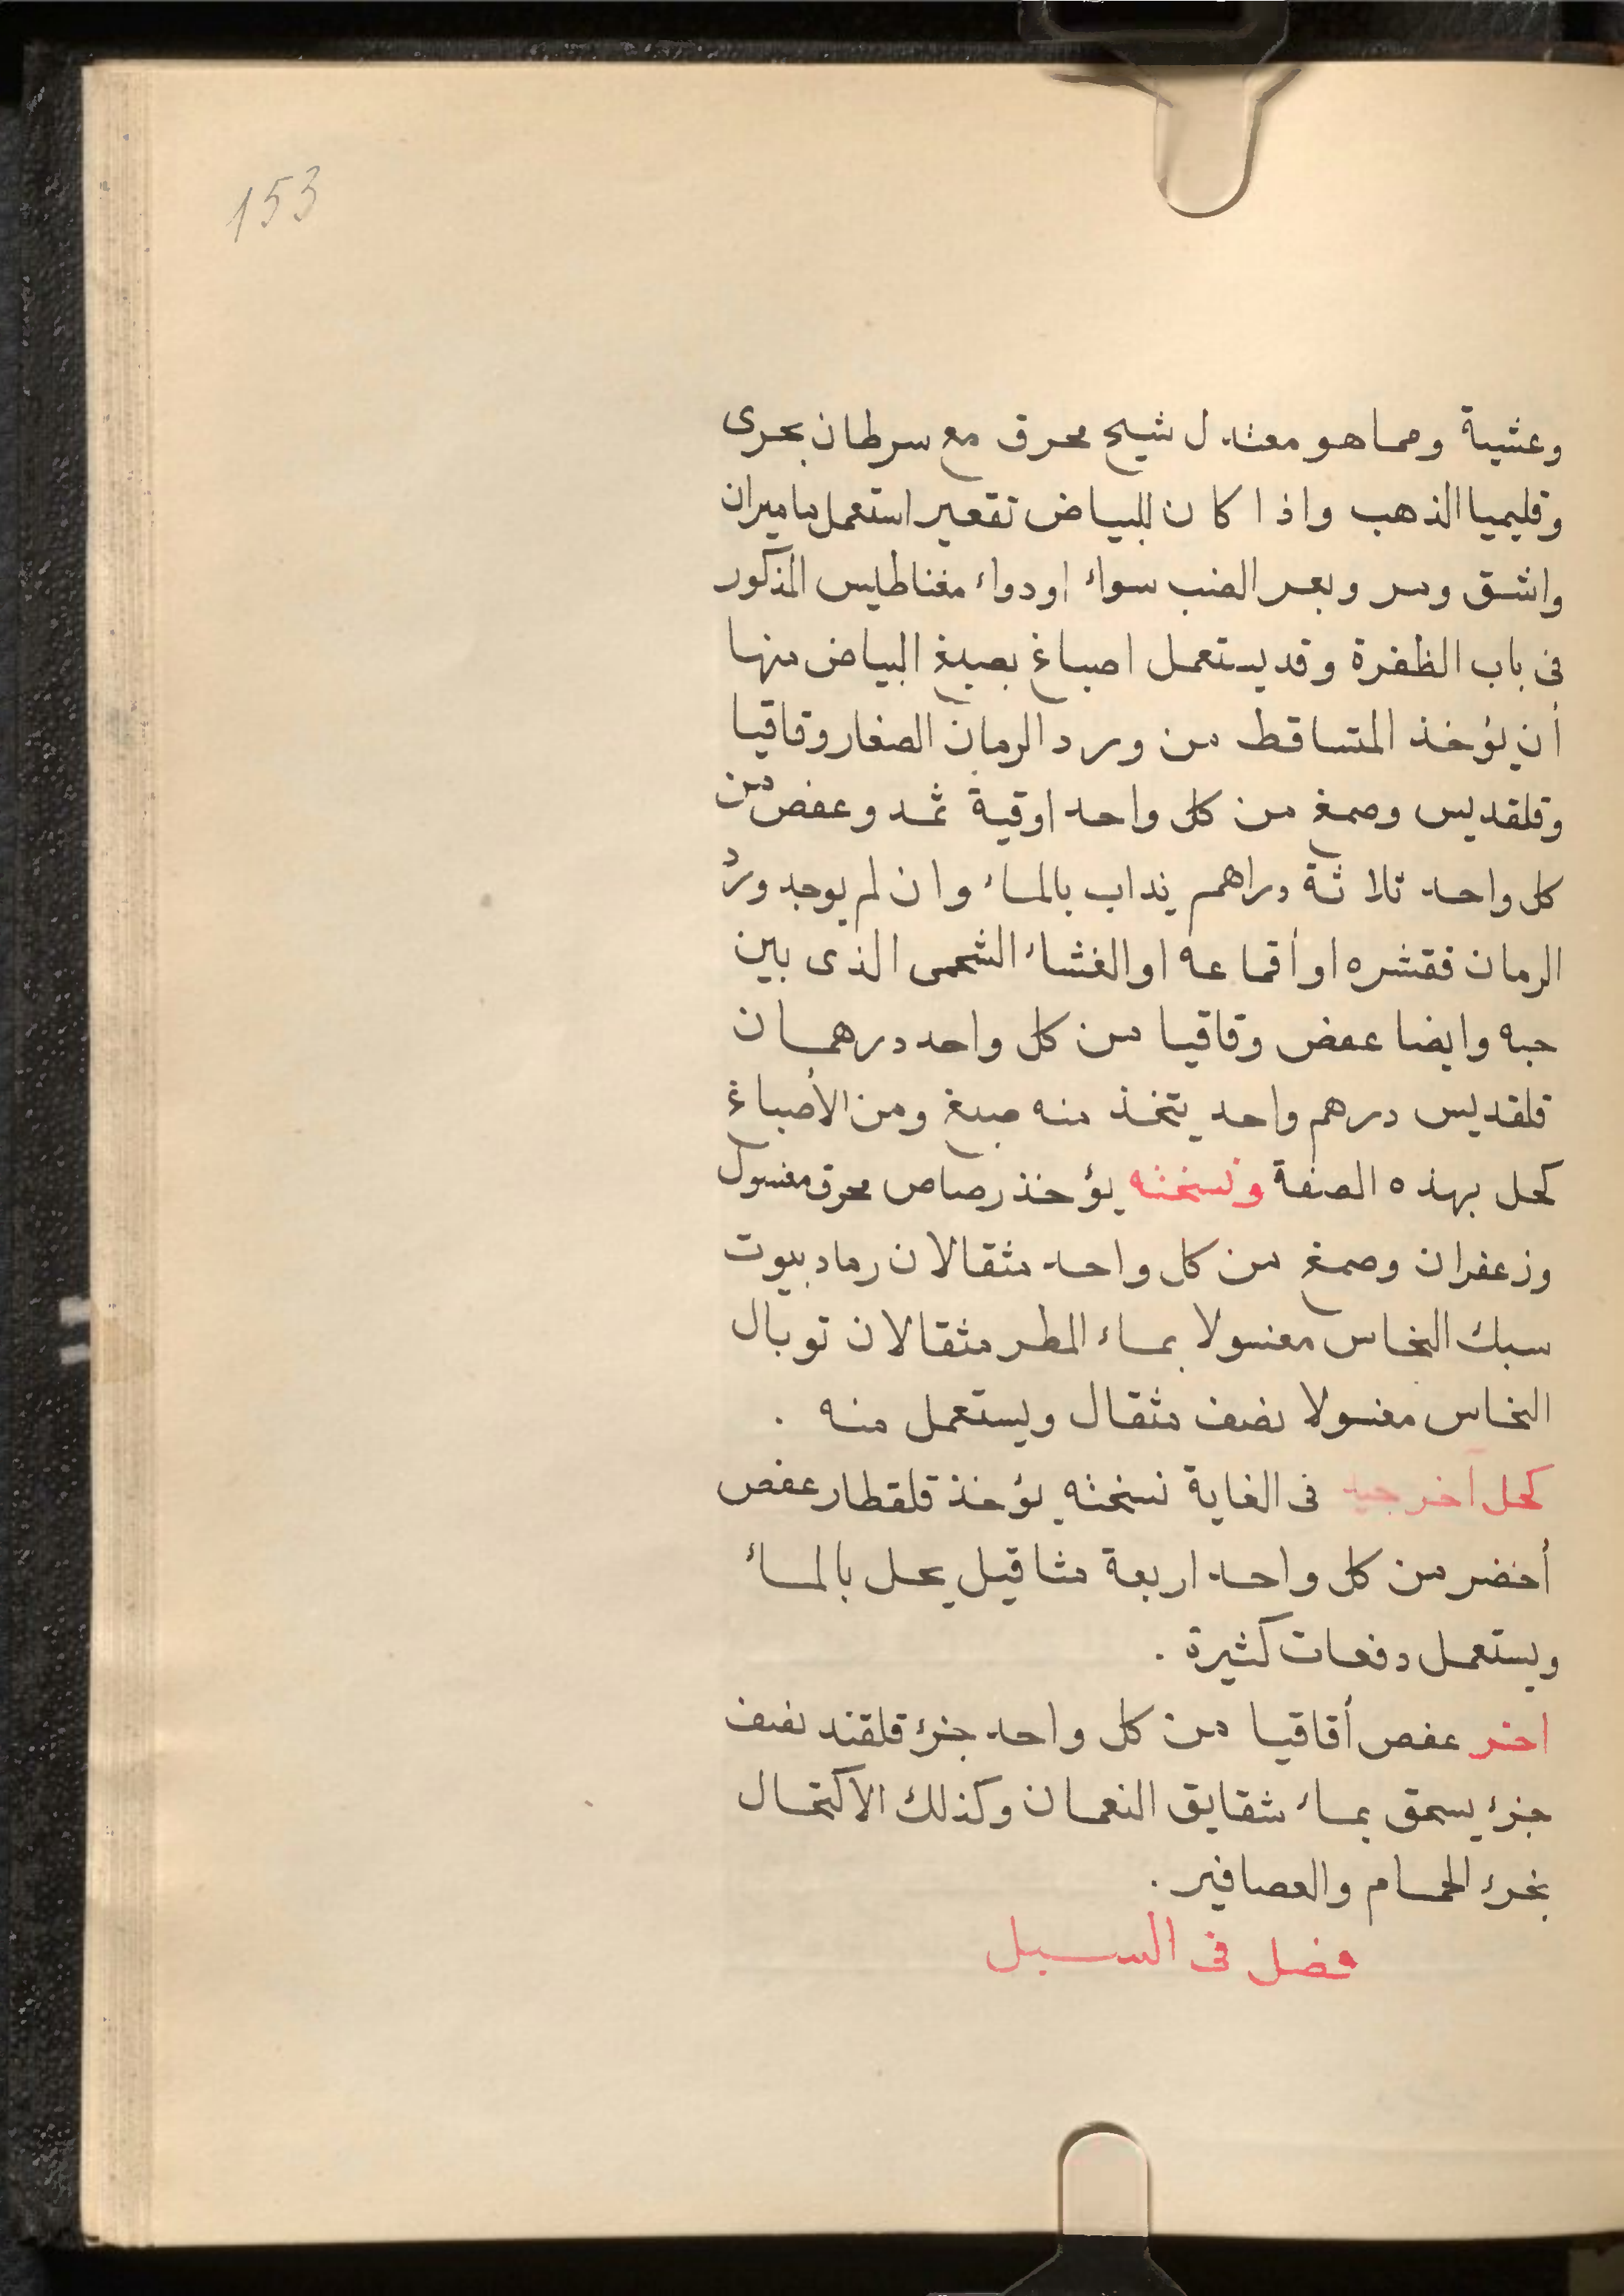 153
وعشية ومما هو معتدل شيح محرق مع سرطان بحرى
وقليميا الذهب واذا كان للبياض تقعير استعمل ماميران
واشق ومر وبعر الضب سواء او دواء مغناطيس المذكور
فى باب الظفرة وقد يستعمل اصباغ بصبغ البياض منها
أن يؤخذ المتساقط من ورد الرمان الصغار وقاقيا
وقلقديس وصمغ من كل واحد اوقية ثمد وعفص من
كل واحد ثلاثة دراهم يذاب بالماء وان لم يوجد ورد
الرمان فقشره او أقماعه او الغشاء الشحمى الذى بين
حبه وايضا عفص وقاقيا من كل واحد درهمان
قلقديس درهم واحد يتخذ منه صبغ ومن الأصباغ
كحل بهذه الصفة ونسخته يؤخذ رصاص محرق مغسول
وزعفران وصمغ من كل واحد مثقالان رماد بيوت
سبك النحاس مغسولا بماء المطر مثقالان توبال
النحاس مغسولا نصف مثقال ويستعمل منه .
كحل آخر جيد فى الغاية نسخته يؤخذ قلقطار عفص
أخضر من كل واحد اربعة مثاقيل يحل بالماء
ويستعمل دفعات كثيرة .
اخر عفص أقاقيا من كل واحد جزء قلقند نصف
جزء يسحق بماء شقايق النعمان وكذلك الاكتحال
بخرء الحمام والعصافير .
فصل فى السبل